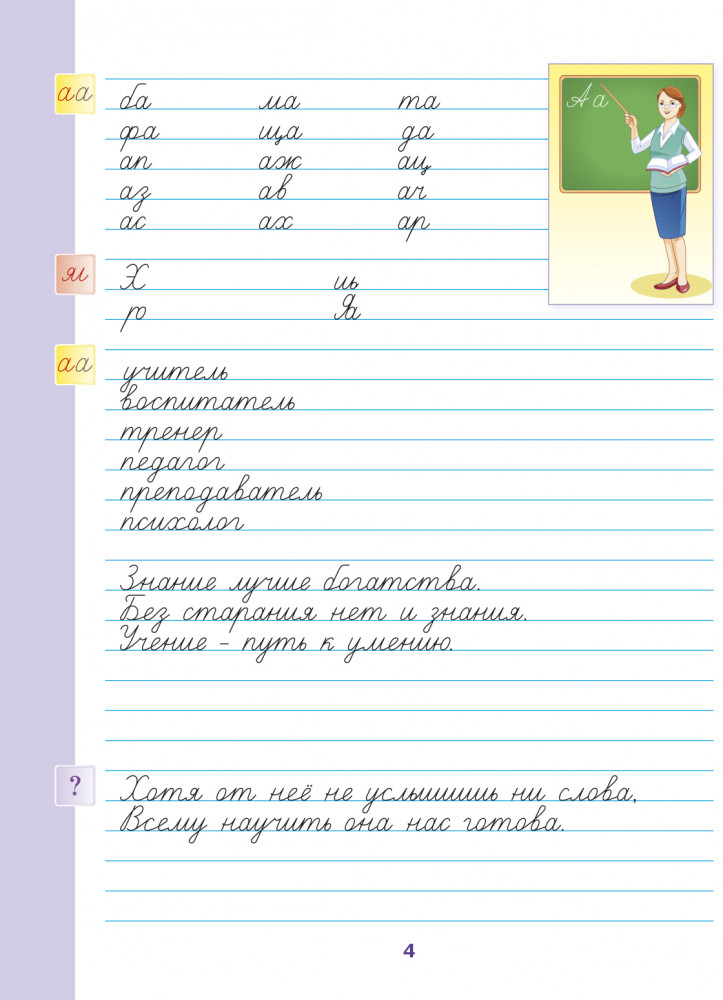 аа
ба ма та
фа ща да
ап аж ац
аз ав ач
ас ах ар
А а
я
Х иь
ро
аа
учитель
воспитатель
тренер
педагог
преподаватель
психолог
Знание лучше богатства.
Без старания нет и знания.
Учение - путь к умению.
?
Хотя от неё не услышишь ни слова,
Всему научить она нас готова.
4